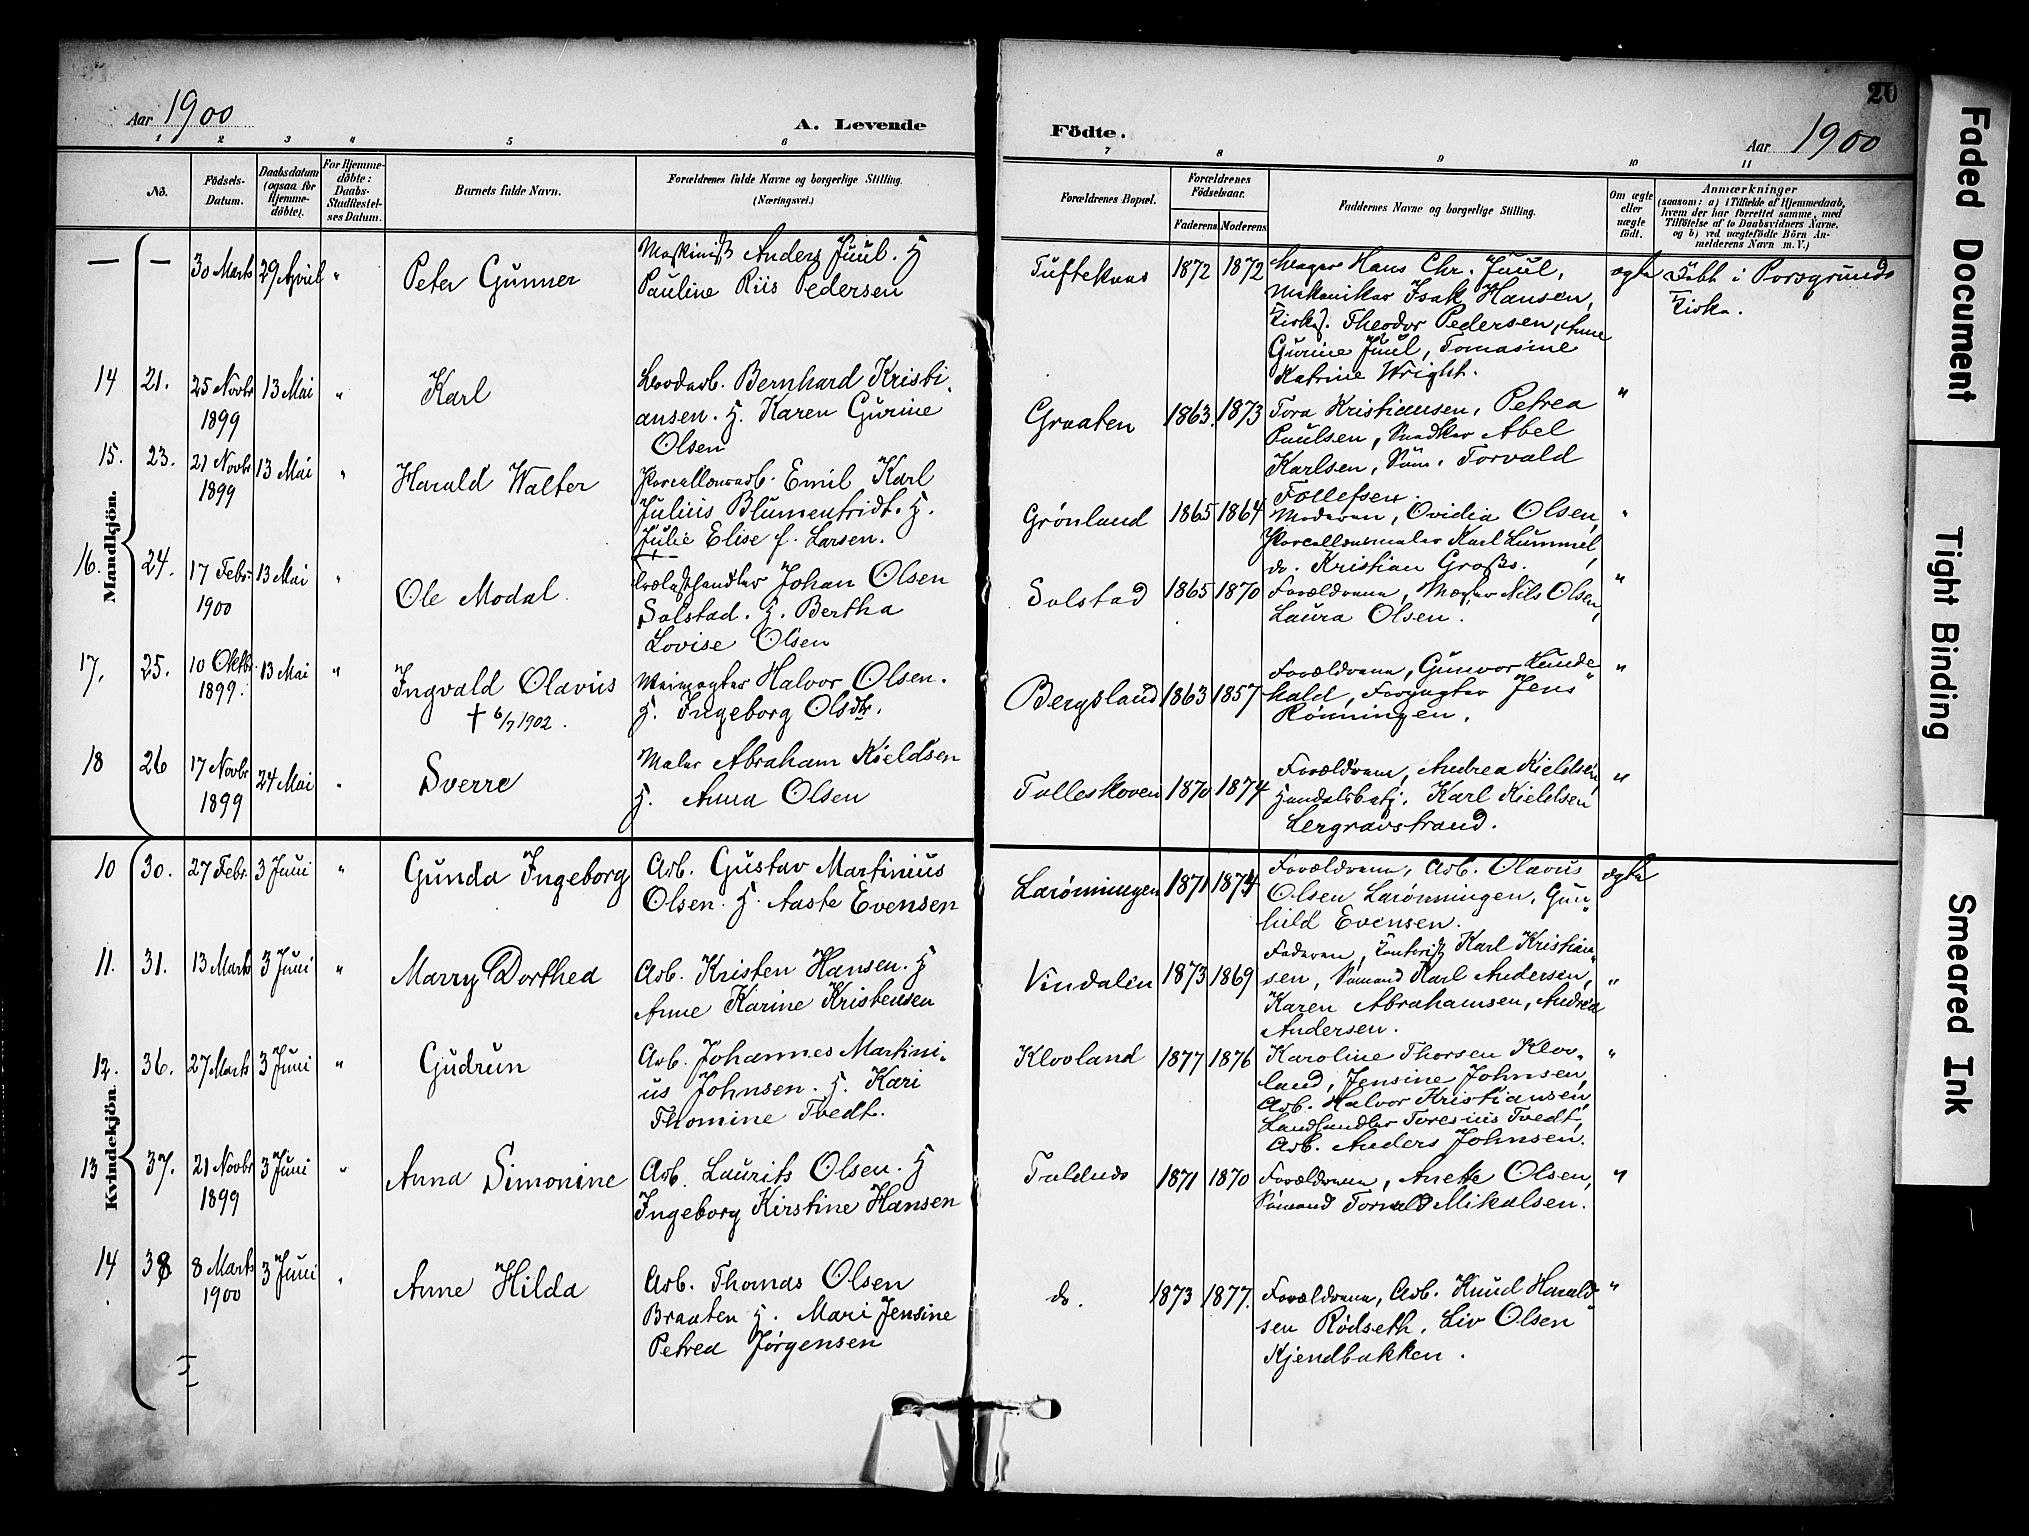 Aar 1900
A. Levende
Födte.
Aar 1900
20
1 2 3 4 5 6 7 8 9 10 11
No.
Födsels-
Datum.
Daabsdatum
(ogsaa for
Hjemme-
döbte).
For Hjemme-
döbte:
Daabs-
Stadfæstel-
ses Datum.
Barnets fulde Navn.
Forældrenes fulde Navne og borgerlige Stilling.
(Næringsvei.)
Forældrenes Bopæl.
Forældrenes
Födselsaar.
Faderens
Moderens
Faddernes Navne og borgerlige Stilling.
Om ægte
eller
uægte
födt.
Anmærkninger
(saasom: a) i Tilfælde af Hjemmedaab,
hvem der har forrettet samme, med
Tilföielse af to Daabsvidners Navne,
og b) ved uægtefödte Börn An-
melderens Navn m. V.)
Mandkjön.
— — 30 Marts 29 April " Peter Gunner
Maskinist Anders Juul. H
Pauline Riis Pedersen
Tuftekaas 1872 1872
Hans Chr. Juul,
Mekaniker Isak Hansen,
Theodor Pedersen, Anne
Gurine Juul, Tomasine
Katrine Wright.
ægte
Döbt i Porsgrunds
Kirke.
14 21. 25 Novbr 13 Mai " Karl
1899
Bernhard Kristi-
ansen. H. Karen Gurine
Olsen
Graaten 1863 1873
Tora Kristiansen, Petrea
Paulsen, Snedker Abel
Karlsen, Søm. Torvald
Tollefsen.
"
15. 23. 21 Novbr 13 Mai " Harald Walter
1899
Porcellænsarb. Emil Karl
Julius Blumentridt. H.
Julie Elise f. Larsen.
Grønland 1865 1864
Moderen, Ovidia Olsen,
Porcellænsmaler Karl Lummel,
do. Kristian Gross.
"
16. 24. 17 Febr. 13 Mai " Ole Modal.
1900
Johan Olsen
Solstad. H. Bertha
Lovise Olsen
Solstad 1865 1870
Forældrene, Nils Olsen,
Laura Olsen.
"
17. 25. 10 Oktbr. 13 Mai " Ingvald Olavus
1899.
† 6/7 1902.
Halvor Olsen.
H. Ingeborg Olsdtr.
Bergsland 1863 1857
Forældrene, Gunvor Hunde-
kald, Jens
Rönningen.
"
18 26 17 Novbr 24 Mai " Sverre
1899
Maler Abraham Kieldsen
H. Anna Olsen
Tolleskoven 1870 1874
Forældrene, Andrea Kieldsen,
Handelsbetj. Karl Kieldsen
Lergravstrand.
"
Kvindekjön
10 30. 27 Febr. 3 Juni " Gunda Ingeborg
Arb. Gustav Martinius
Olsen. H. Aaste Evensen
Larönningen 1871 1874
Forældrene, Arb. Olavus
Olsen Larönningen, Gun-
hild Evensen.
ægte
11. 31. 13 Marts 3 Juni " Marry Dorthea
Arb. Kristen Hansen. H
Anne Karine Kristensen
Vindalen 1873 1869
Faderen, Kontorist Karl Kristian-
sen, Sømand Karl Andersen,
Karen Abrahamsen, Andrea
Andersen.
"
12. 36. 27 Marts 3 Juni " Gudrun
Arb. Johannes Martini-
us Johnsen. H. Kari
Thomine Tvedt.
Klovland 1877 1876
Karoline Thorsen Klov-
land, Jensine Johnsen,
Arb. Halvor Kristiansen,
Landhandler Toresius Tvedt,
Arb. Anders Johnsen.
"
13 37. 21 Novbr 3 Juni " Anna Simonine
1899
Arb. Laurits Olsen. H
Ingeborg Kirstine Hansen
1871 1870
Forældrene, Anette Olsen,
Sømand Torvald Mikalsen.
"
14 38 8 Marts 3 Juni " Anne Hilda
1900
Arb. Thomas Olsen
Braaten H. Mari Jensine
Petrea Jørgensen
do. 1873 1877.
Forældrene, Arb. Knud Harald-
sen Rödseth, Liv Olsen
Kjendbakken.
"
Faded Document
Tight Binding
Smeared Ink